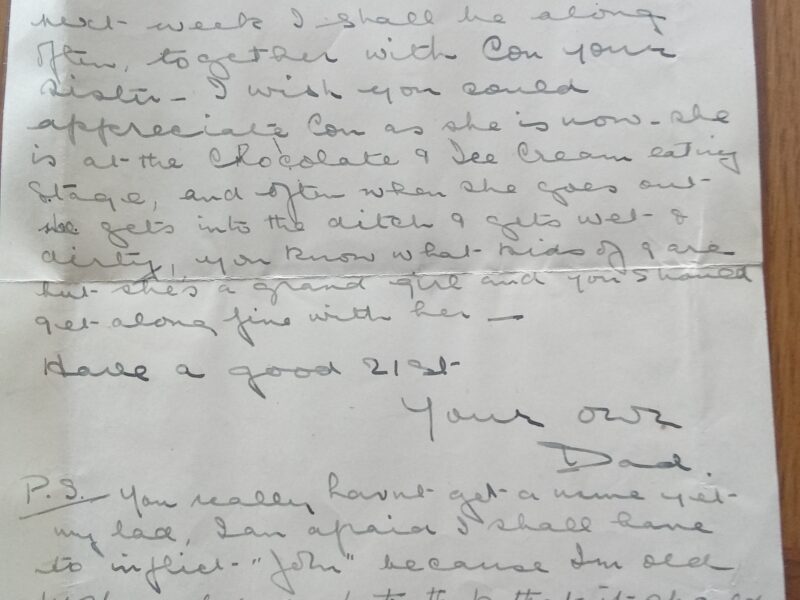 next week I shall be along
often, together with Con your
sister - I wish you could
appreciate Con as she is now - she
is at the Chocolate & Ice Cream eating
stage, and often when she goes out
she gets into the ditch & gets wet &
dirty, you know what kids of 9 are
but she's a grand girl and you should
get along fine with her —
Have a good 21st
Your own
Dad.
P.S. You really havnt got a name yet
my lad, I am afraid I shall have
to inflict "John" because I'm old